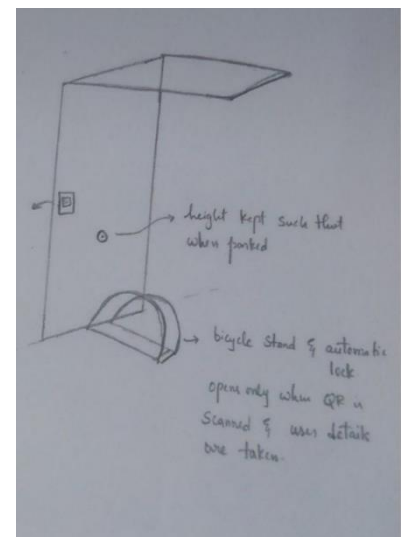 height kept such that
when parked
bicycle stand & automatic
lock
opens only when QR is
scanned & user details
are taken.